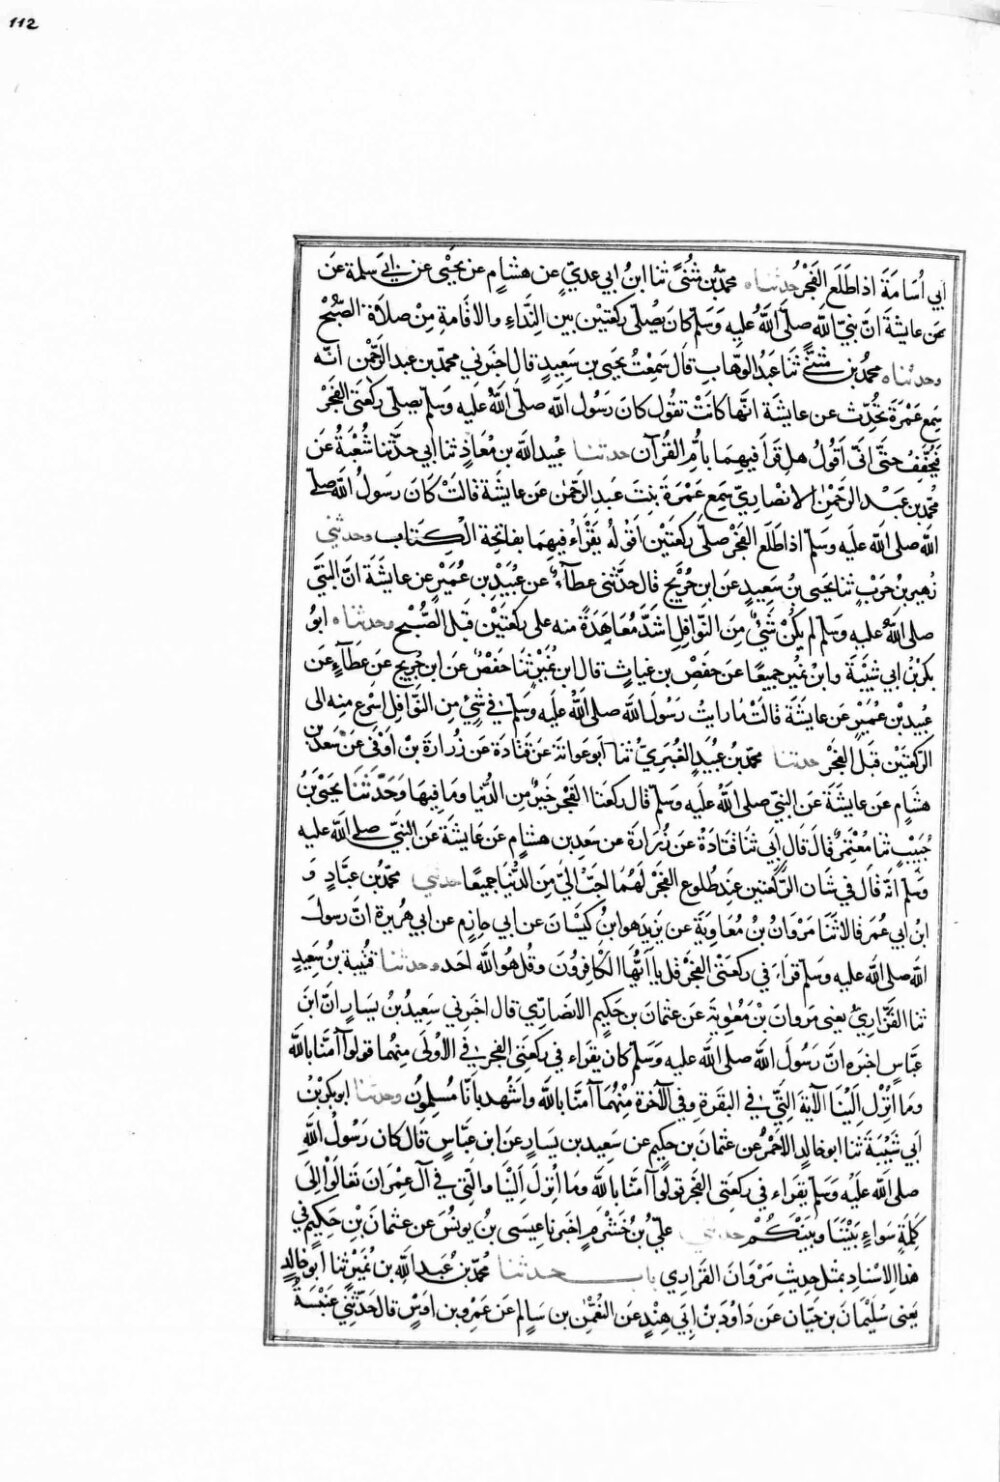 112
ابي اُسَامَةَ اذا طَلَعَ الفَجْرُ حدثناه محمّد بن مُثنّى ثنا ابنُ ابي عديٍّ عن هشامٍ عن يحيٰى عن ابي سلمة عَن
عن عايشةَ انّ نبيّ الله صلّى اللهُ عليه وَسَلم كان يُصلّى ركعتيْن بين النّداءِ والاقامةِ مِنْ صلاة الصّبْح
وحدثناه محمّد بن مثنّى ثنا عبدُ الوهّابِ قال سَمِعْتُ يحيى بن سَعِيدٍ قال اخبرني محمّد بن عبد الرّحمٰن انّه
سَمِعَ عَمْرَةَ تُحدِّث عن عايشَة انّها كانَتْ تقُول كان رَسُول الله صلى اللهُ عليه وسَلم يصلى ركعتى الفَجْر
فيُخفّف حتّى انّى اَقولُ هل قرَأ فيهِمَا بأمِّ القُرآن حدثنا عبيد الله بن مُعَاذٍ ثنا ابي حدّثنا شُعْبَةُ عَن
محمّد بن عَبْد الرّحمٰن الانصاريّ سَمِع عَمْرَة بِنتَ عَبد الرّحمٰن عن عايشَة قالتْ كَان رَسُولُ الله صلى
الله صلى الله عليه وسَلم اذا طَلَع الفَجْر صلّى ركعتَيْن اقولُ يَقْرَاءُ فيهِمَا بفاتحة الْكِتَاب وحدثني
زهير بن حَرْبٍ ثنا يحيى بنُ سَعِيدٍ عَن ابنِ جُرَيْجٍ قال حدَّثنى عطآءٌ عن عُبَيْد بن عُمَيْرٍ عن عايشَةَ انّ النبّى
صلى اللهُ عليه وسَلم لم يكُنْ على شَئْ مِنَ النّوافِل اشدَّ مُعَاهَدَةً منه على ركعتَيْن قبْل الصّبْح وحدثناه ابوُ
بكر بْنُ ابي شَيْبَة وابنُ نُمَيرٍ جميعًا عن حفصِ بن غياثٍ قال ابن نُمَيْرٍ ثنا حَفْصٌ عَن ابنِ جُرَيجٍ عَن عطآءٍ عَن
عُبيد بْن عُمَيْرٍ عن عايشَة قالتْ مَا رايتُ رَسُولَ الله صلى اللهُ عَلَيه وَسَلم في شَئْ مِن النّوافِل اَسْرع منه الى
الرّكعتَيْن قبل الفَجْر حدثنا محمّد بنُ عُبيدٍ الغُبَريُّ ثنا ابو عوانة عَن قتادة عَن زُرارَة بْن اَوْفٰى عَنْ سَعد بن
هشَامٍ عن عايشَة عَن النّبي صلى الله عليه وسَلم قال ركعتا الفَجْر خيرٌ مِن الدُّنيا وما فيهَا وَحَدّثنا يحيٰى بنُ
حَبِيبٍ ثنا مُعْتَمرٌ قالَ قال اَبي ثنا قَتادَةُ عَن زُرَارَة عن سَعد بن هشامٍ عَن عايشَة عَن النّبّي صلى الله عليه
وَسَلم انّهُ قال في شَان الرّكعَتين عِند طُلوع الفَجْر لَهُما احبّ اِليّ مِنَ الدّنْيا جميعًا حدثني محمّد بن عبّادٍ وَ
ابنُ ابي عُمَر قالا ثنا مَرْوانُ بنُ مُعاوية عن يزيد هو ابنُ كَيْسَانَ عن ابي حازمٍ عن ابي هُريرة انّ رسولَ
الله صلى الله عليه وسَلم قرَاء في ركعتَى الفَجْر قل ياايّها الكافرُون وقل هوُ الله احَد وحدثنا قتيبة بنُ سَعِيدٍ
ثنا الفَزَاريُّ يعنى مَروان بْنَ مُعٰوية عَن عثمانَ بن حَكيمٍ الانصَارّي قال اخبرني سَعِيدُ بنُ يسَارٍ انّ ابنَ
عبّاسٍ اخبره انّ رَسُولَ الله صلى الله عليه وسَلم كان يقرَاء في ركعتَى الفجر في الأوُلى مِنهُما قولوُا آمنّا بالله
وما اُنْزل اِلَيْنا الآيَة الّتي في البقَرة وفي الآخرة مِنْهُمَا آمَنّا بالله واشهد بانّا مُسْلِمون وحدثنا ابو بكر بْنُ
اَبي شَيْبَة ثنا ابو خالدٍ الاحمرُ عن عثمان بن حكيمٍ عن سَعيد بن يَسَارٍ عَن ابن عبّاسٍ قال كان رَسُولُ اللهِ
صلى الله عَليْه وسَلم يقرَاء في ركعتَى الفَجر قولُوا آمنّا بالله ومَا اُنزلَ اِلَيْنَا والّتى في آل عِمْرَان تعَالَوْا اِلَى
كَلِمَةٍ سَواءٍ بَيْنَنَا وبينَكُمْ حدثني علىّ بنُ خَشْرَمٍ اخبرنا عيسَى بنُ يونُسَ عن عثمانَ بْن حَكِيمٍ في
هذا الاِسْنادِ بمثل حديثِ مَرْوان الفزاري باب حدثنا محمّد بن عبد اللهِ بن نُمَيْرٍ ثنا ابو خالدٍ
يَعنى سُليْمانَ بن حَيّان عن دَاوُد بْن اِبي هِنْدٍ عَن النُعْمٰن بن سَالِمٍ عَن عَمْرو بن اَوسٍ قال حَدّثني عَنْبَسَةُ